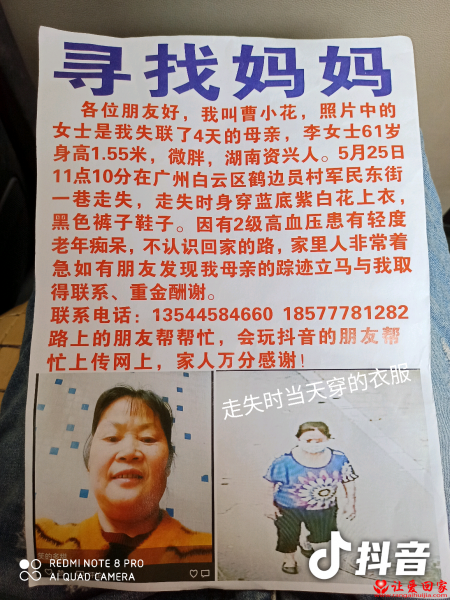 寻找妈妈
各位朋友好，我叫曹小花，照片中的
女士是我失联了4天的母亲，李女士61岁
身高1.55米，微胖，湖南资兴人。5月25日
11点10分在广州白云区鹤边员村军民东街
一巷走失，走失时身穿蓝底紫白花上衣，
黑色裤子鞋子。因有2级高血压患有轻度
老年痴呆，不认识回家的路，家里人非常着
急如有朋友发现我母亲的踪迹立马与我取
得联系、重金酬谢。
联系电话：13544584660 18577781282
路上的朋友帮帮忙，会玩抖音的朋友帮
忙上传网上，家人万分感谢！
走失时当天穿的衣服
REDMI NOTE 8 PRO
AI QUAD CAMERA
抖音
让爱回家